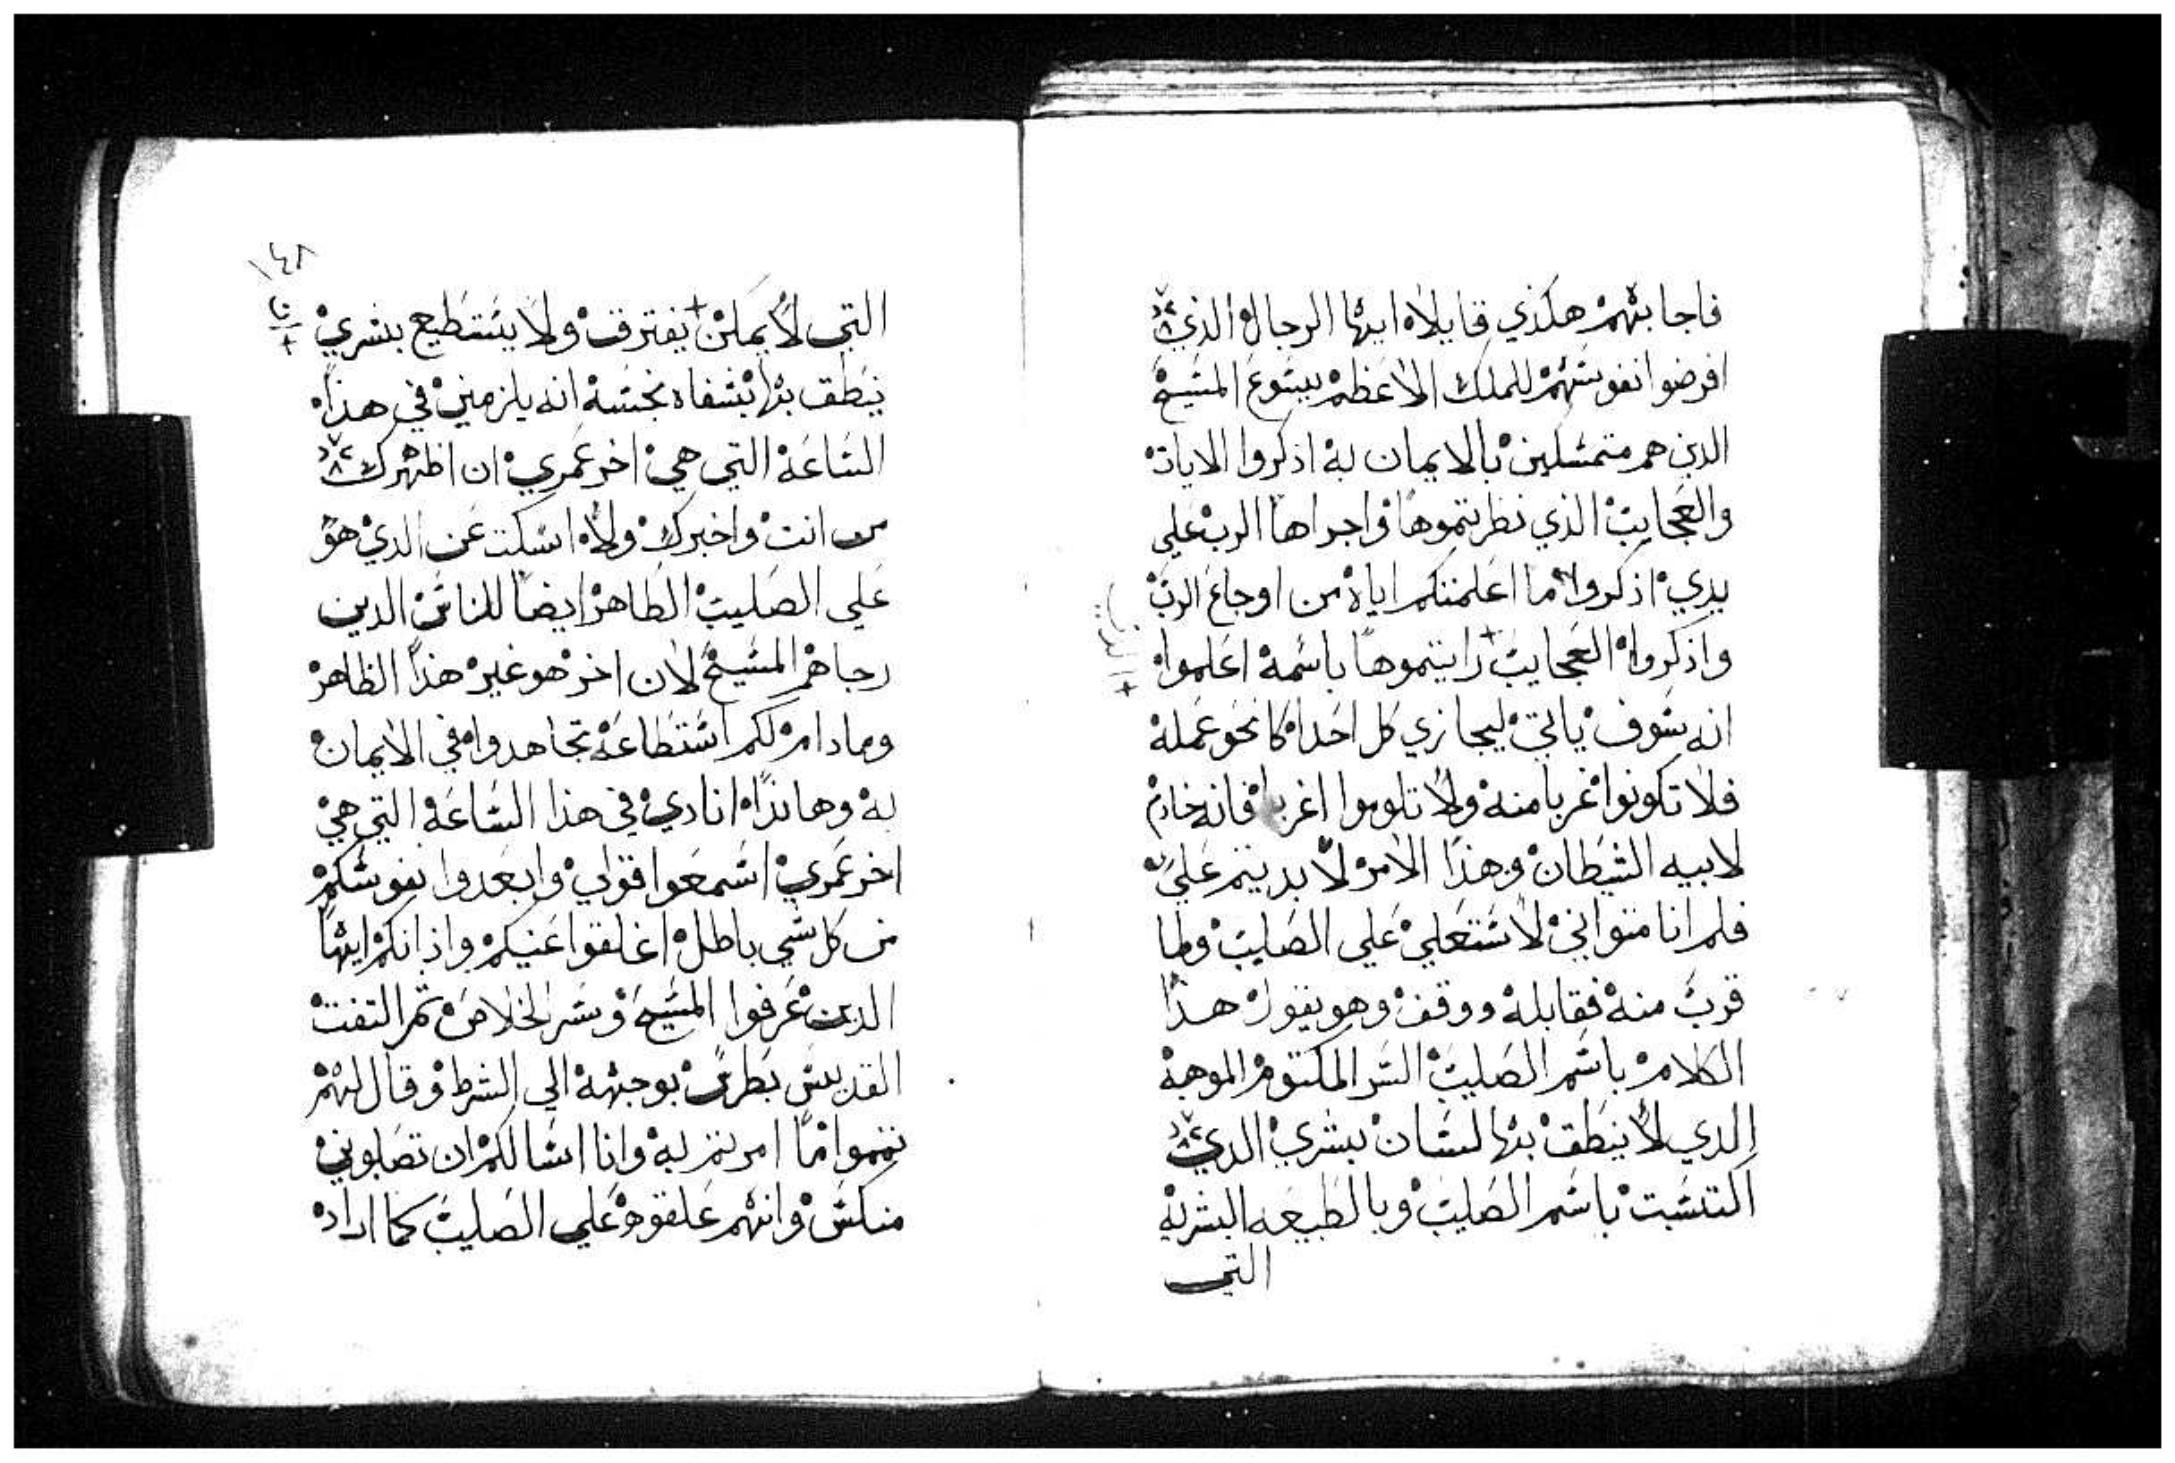 فاجابتهم هكذي قايلاه ايها الرجال الذي
افرضوا نفوسهم للملك الاعظم يسوع المسيح
الدين هم متمسكين بالايمان به اذكروا الايات
والعجايب الذي نظرتموها واجراها الرب علي
يدي اذكروا ما اعلمتكم اياه من اوجاع الرب
واذكروا العجايب رايتموها باسمه اعلموا
+ الذي
انه سوف ياتي ليجازي كل احدا كانحو عمله
فلا تكونوا غربا منه ولا تلوموا اغربا فانه خادم
لابيه الشيطان وهذا الامر لا بد يتم علي
فلم انا متواني لاستعلي علي الصليب ولما
قرب منه فقابله ووقف وهو يقول هذا
الكلام باسم الصليب السر المكتوم الموهبه
الدي لا ينطق بها لسان بشري الدي
اكتسبت باسم الصليب وبالطبيعه البشريه
التي
١٤٨
التي لا يمكن + يفترق ولا يستطيع بشري
ينطق بها بشفاه نجسه انه يلزمني في هذا
الساعه التي هي اخر عمري ان اظهرك
من انت واخبرك ولا اسكت عن الدي هو
علي الصليب الطاهر ايضا للناس الدين
رجاهم المسيح لان اخر هو غير هذا الظاهر
ومادام لكم استطاعه تجاهدوا في الايمان
به وهانذا انادي في هذا الساعه التي هي
اخر عمري اسمعوا قولي وابعدوا نفوسكم
من كل شي باطل اغلقوا عنيكم واذانكم ايها
الدين عرفوا المسيح وسر الخلاص ثم التفت
القديس بطرس بوجهه الي الشرط وقال لهم
تمموا ما امرتم به وانا اسالكم ان تصلبوني
منكس وانهم علقوه علي الصليب كما اراد